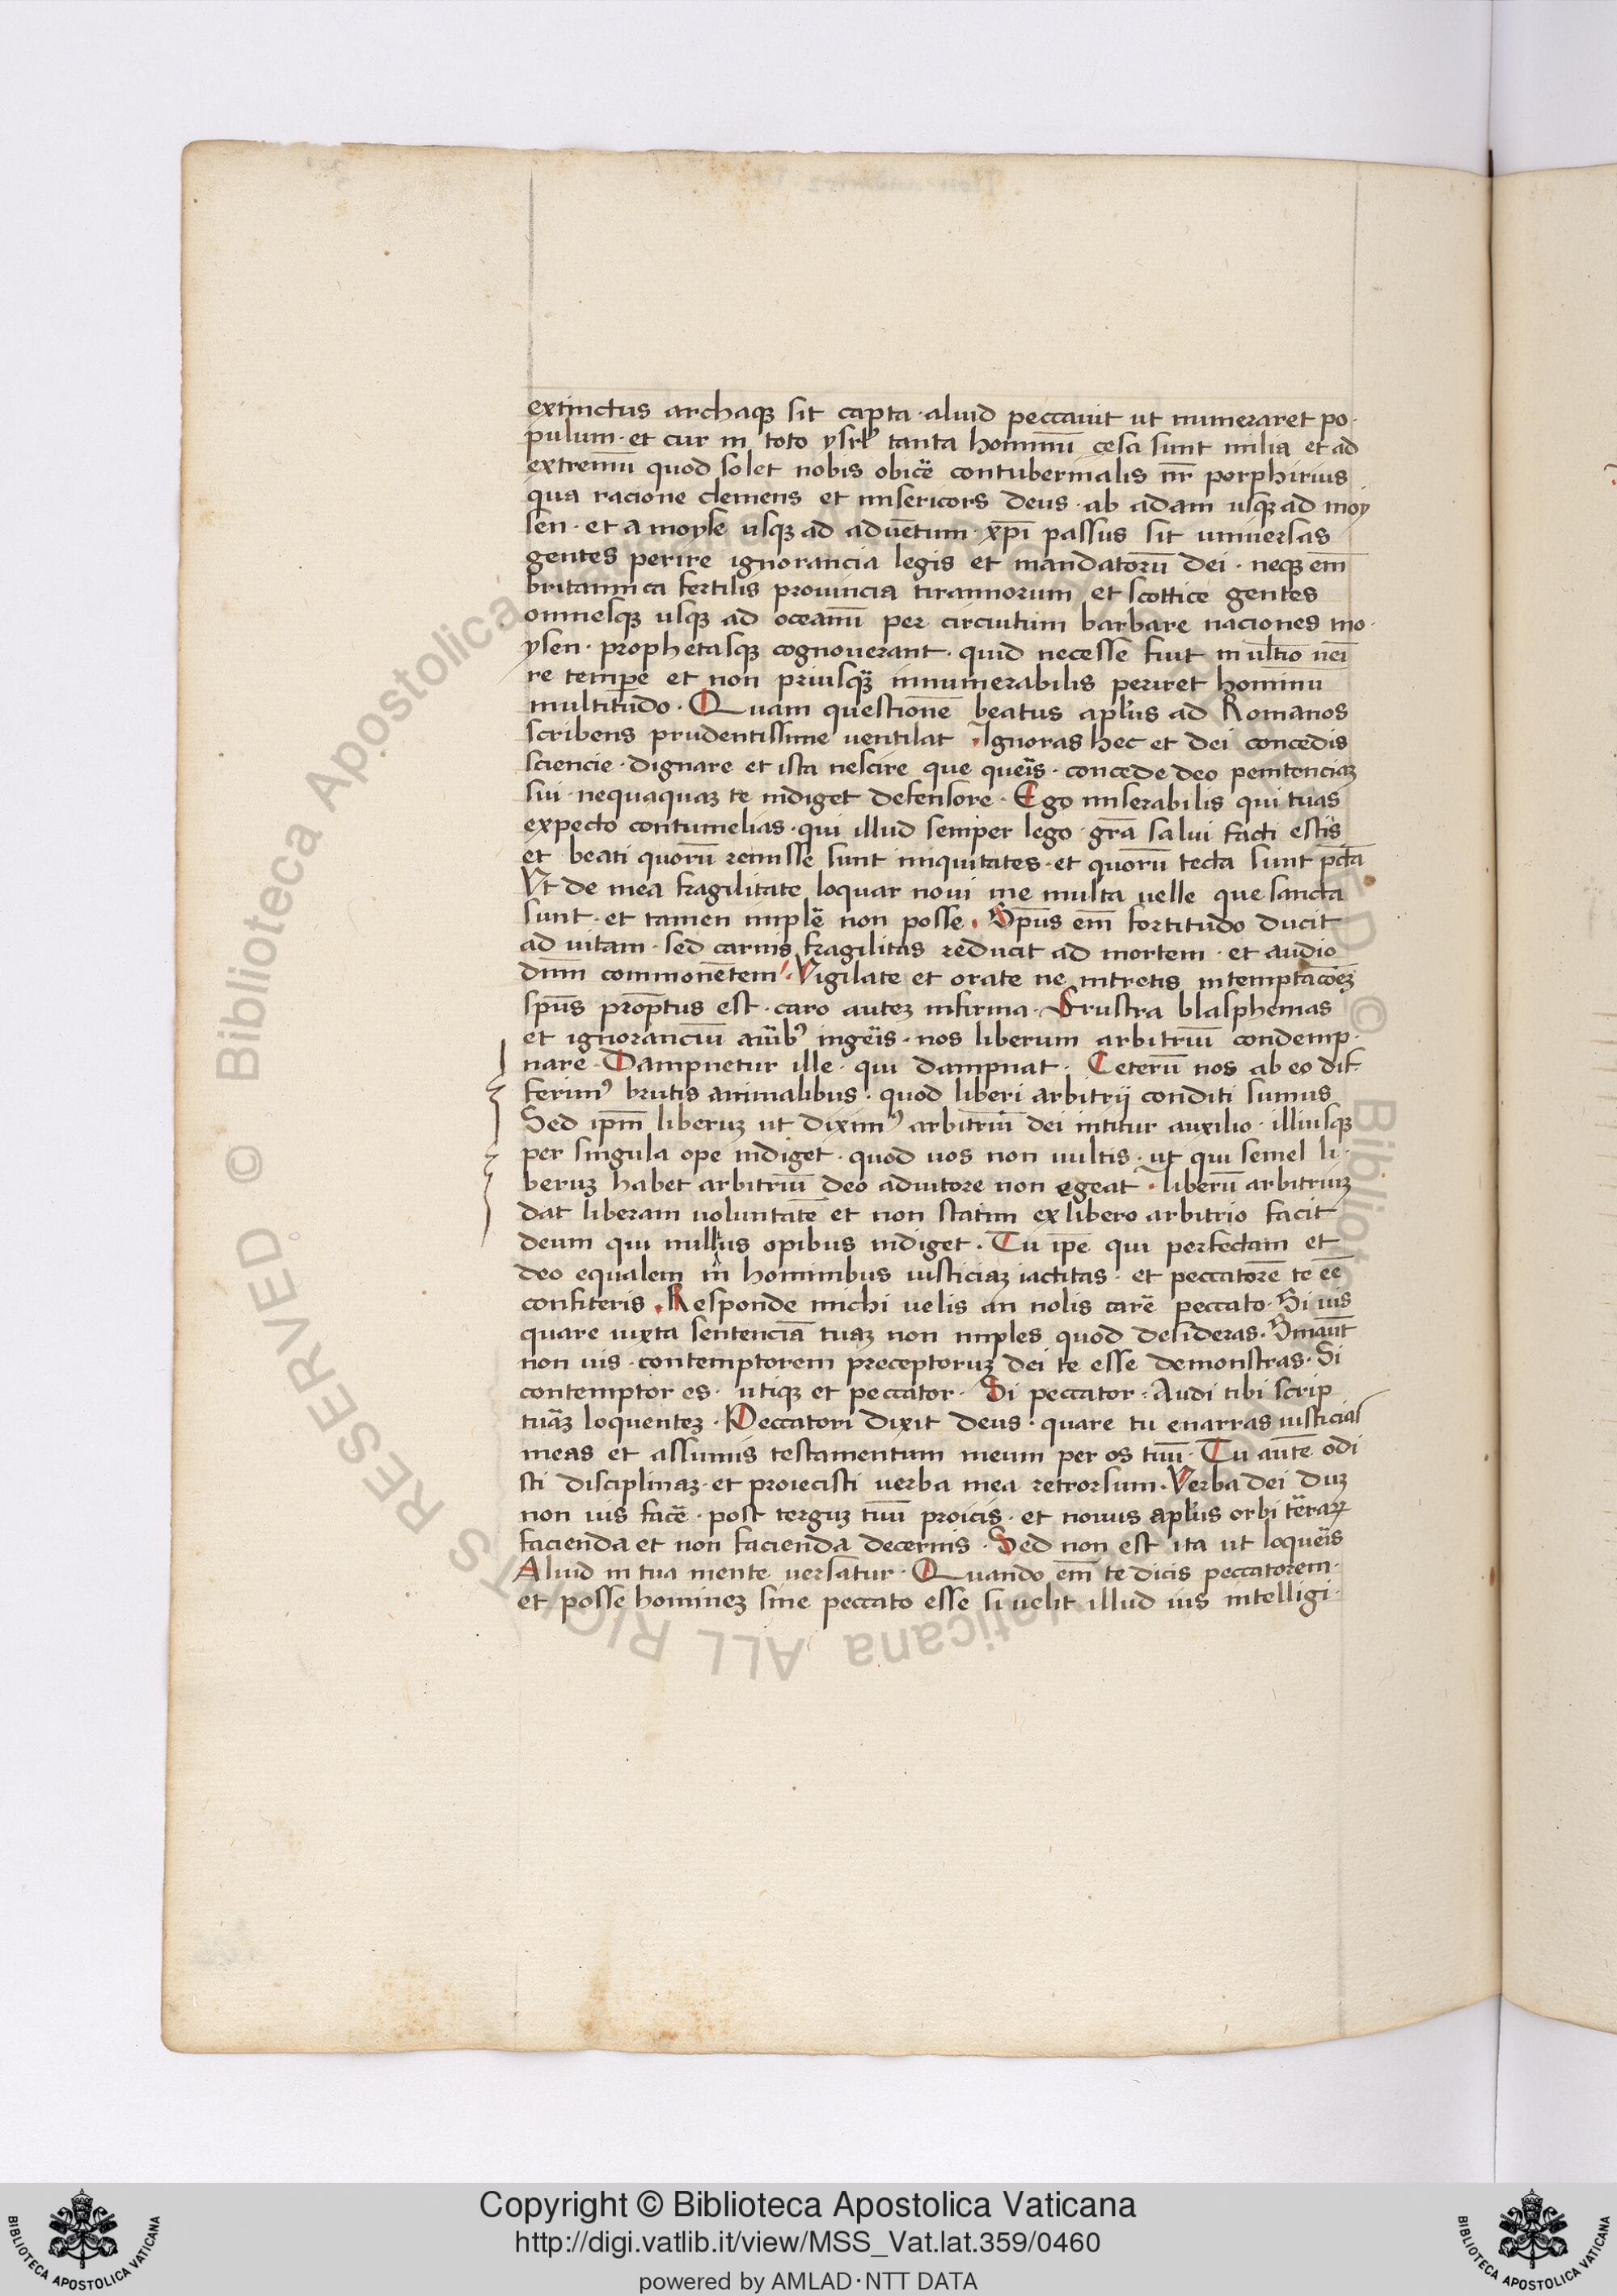 extinctus archaqꝫ sit capta · aliud peccauit ut numeraret po·
pulum · et cur in toto ysrl̓ tanta hominū cesa sunt milia et ad
extremū quod solet nobis obicē contubernalis nr̄ porphirius
qua racione clemens et misericors deus · ab adam usqꝫ ad moy
sen · et a moyse usqꝫ ad aduētum · xp̄i passus sit uniuersas
gentes perire ignorancia legis et mandatorū dei · neqꝫ em̄
britannica fertilis prouincia tirannorum et scottice gentes
omnesqꝫ usqꝫ ad oceanū per circuitum barbare naciones mo·
ysen · prophetasqꝫ cognouerant · quid necesse fuit in ultīo uēi
re tempe et non priusqꝫ̄ innumerabilis periret hominu
multitudo · Quam questionē beatus apl̓us ad Romanos
scribens prudentissime uentilat · Ignoras hec et dei concedis
sciencie · dignare et ista nescire que querīs · concede deo penitenciaꝫ
sui · nequaquaꝫ te indiget defensore · Ego miserabilis qui tuas
expecto contumelias · qui illud semper lego · grā salui facti estis
et beati quorū remisse sunt iniquitates · et quorū tecta sunt pctā
Vt de mea fragilitate loquar noui me multa uelle que sancta
sunt · et tamen implē non posse · Sp̄us em̄ fortitudo ducit
ad vitam · sed carnis fragilitas reducit ad mortem · et audio
dnm̄ commonētem · Vigilate et orate ne intretis in temptacōeꝫ
sp̄us prōptus est · caro auteꝫ infirma · Frustra blasphemas
et ignoranciū aurībꝰ ingeris · nos liberum arbitriū condemp·
nare · Dampnetur ille · qui dampnat · Ceterū nos ab eo dif-
ferimꝰ brutis animalibus · quod liberi arbitrij conditi sumus
Sed ipm̄ liberuꝫ ut diximꝰ arbitriū dei nititur auxilio · illiusqꝫ
per singula ope indiget · quod uos non uultis · ut qui semel li·
beruꝫ habet arbitriū deo adiutore non egeat · liberū arbitriuꝫ
dat liberam uoluntatē et non statim ex libero arbitrio facit
deum qui nullius opibus indiget · Tu ip̄e qui perfectam et
deo equalem in hominibus iusticiaꝫ iactitas · et peccatorē te eē
confiteris · Responde michi uelis an nolis carē peccato · Si uis
quare iuxta sentenciā tuaꝫ non imples quod desideras · Sinaūt
non uis · contemptorem preceptoruꝫ dei te esse demonstras · Si
contemptor es · utiqꝫ et peccator · Si peccator · Audi tibi scrip
turāꝫ loquenteꝫ · Peccatori dixit deus · quare tu enarras iusticias
meas et assumis testamentum meum per os tuū · Tu autē odi
sti disciplinaꝫ · et proiecisti uerba mea retrorsum · Verba dei duꝫ
non uis facē · post terguꝫ tuū proicis · et nouus apl̓us orbi terraꝝ
facienda et non facienda decernis · Sed non est ita ut loquerīs
Aliud in tua mente uersatur · Quando em̄ te dicis peccatorem ·
et posse homineꝫ sine peccato esse si uelit illud uis intelligi ·
Copyright © Biblioteca Apostolica Vaticana
http://digi.vatlib.it/view/MSS_Vat.lat.359/0460
powered by AMLAD·NTT DATA
BIBLIOTECA APOSTOLICA VATICANA
BIBLIOTECA APOSTOLICA VATICANA
© Biblioteca Apostolica Vaticana ALL RIGHTS RESERVED